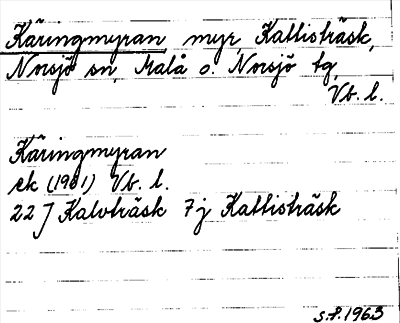 Käringmyran, myr, Kattisträsk,
Norsjö sn, Malå o. Norsjö tg,
Vb. l.
Käringmyran
ek (1961) Vb. l.
22 J Kalvträsk 7j Kattisträsk
S.P. 1963